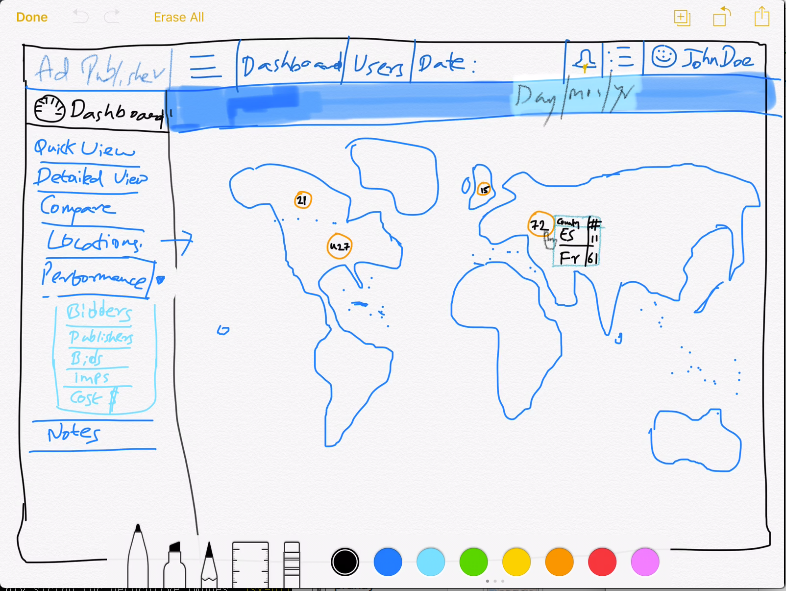 Done Erase All
Ad Publisher Dashboard Users Date: John Doe
Dashboard Day/mn/yr
Quick View
Detailed View
Compare
Locations.
Performance
Bidders
Publishers
Bids
Imps
Cost $
Notes
21
427
15
72
County #
ES 11
Fr 61